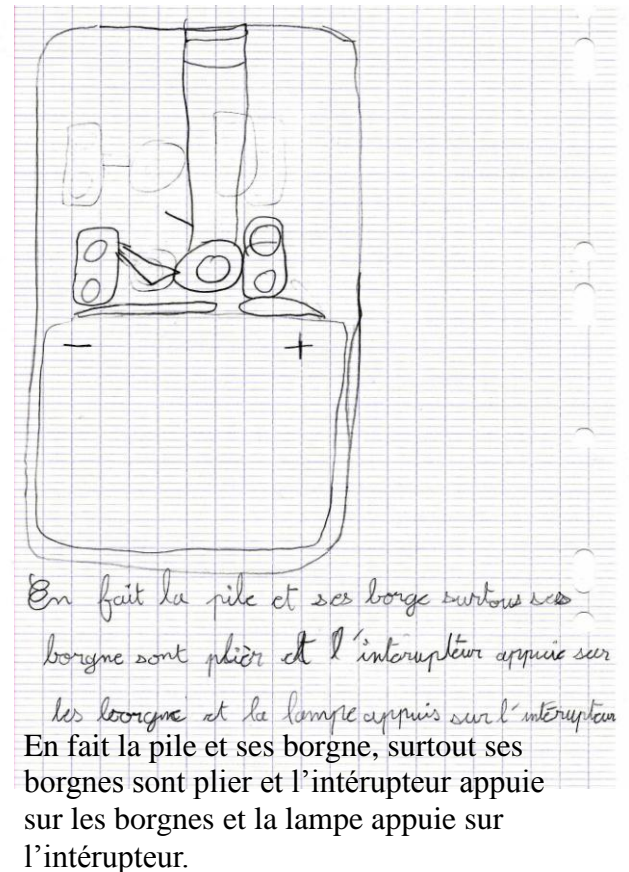 − +
En fait la pile et ses borge surtous ses
borgne sont plièr et l'intérupteur appuie sur
les borgne et la lampe appuis sur l'intérupteur
En fait la pile et ses borgne, surtout ses
borgnes sont plier et l'intérupteur appuie
sur les borgnes et la lampe appuie sur
l'intérupteur.